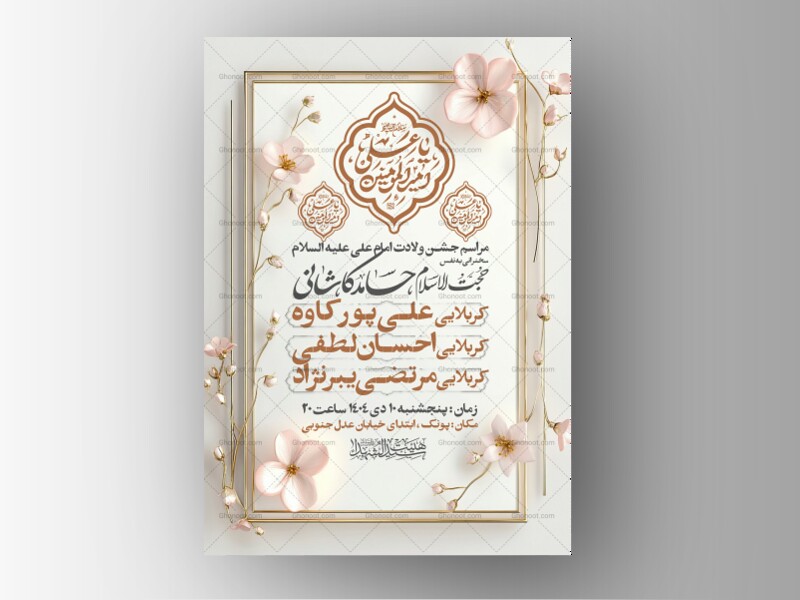 یا علی
امیرالمؤمنین
مراسم جشن ولادت امام علی علیه السلام
سخنرانی به نفس
حجت الاسلام حامد کاشانی
کربلایی علی پور کاوه
کربلایی احسان لطفی
کربلایی مرتضی یبرنژاد
زمان : پنجشنبه ۱۰ دی ۱۴۰۴ ساعت ۲۰
مکان : پونک ، ابتدای خیابان عدل جنوبی
هیئت سیدالشهدا
Ghonoot.com